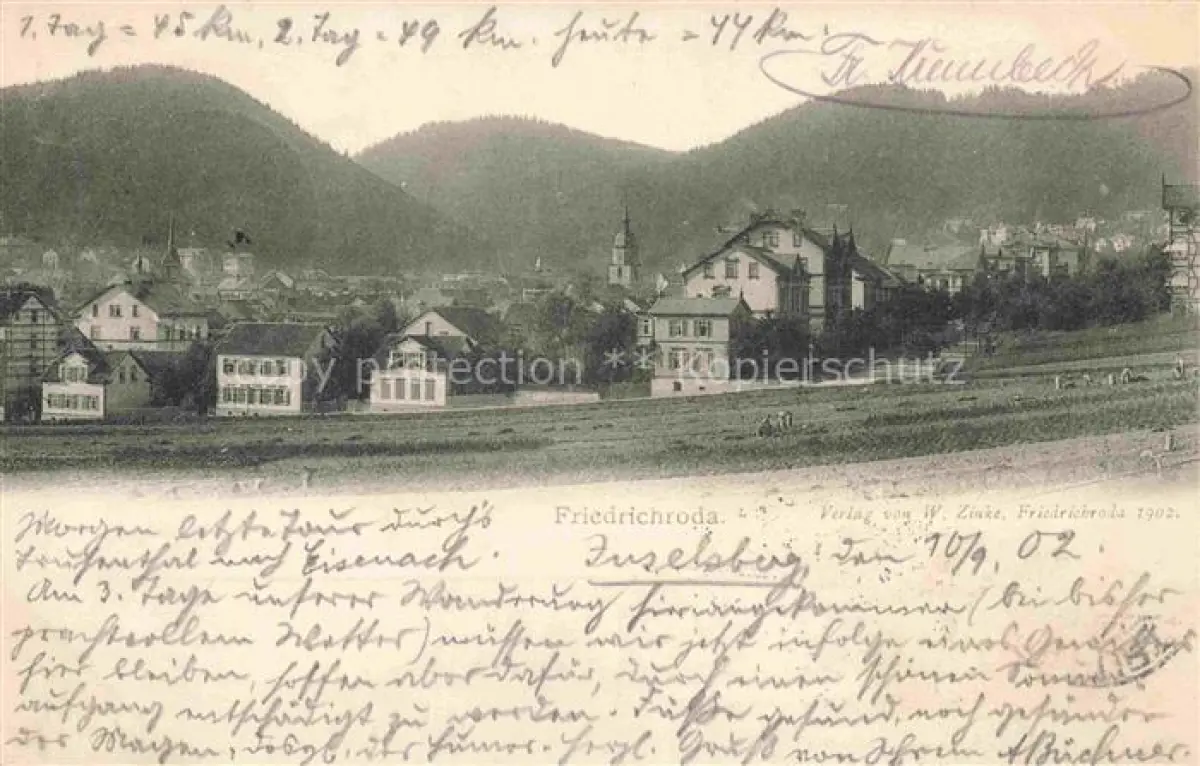 1. Tag = 45 km, 2. Tag = 49 km. heute = 44 km.
Fr.
copy protection ** Kopierschutz
Friedrichroda.
Verlag von W. Zinke, Friedrichroda 1902.
Morgen letzte Tour durch's
Truhenthal nach Eisenach.
Inselsberg, den 10/9. 02.
Am 3. Tage unserer Wanderung hier angekommen (bei bisher
prachtvollem Wetter) müssen wir jetzt infolge eines
hier bleiben, hoffen aber dafür, durch einen schönen Sonnen-
aufgang entschädigt zu werden. Füße gesund, noch gesünder
der Magen, desgl. der Humor. Herzl. Gruß von Ihrem A Büchner.